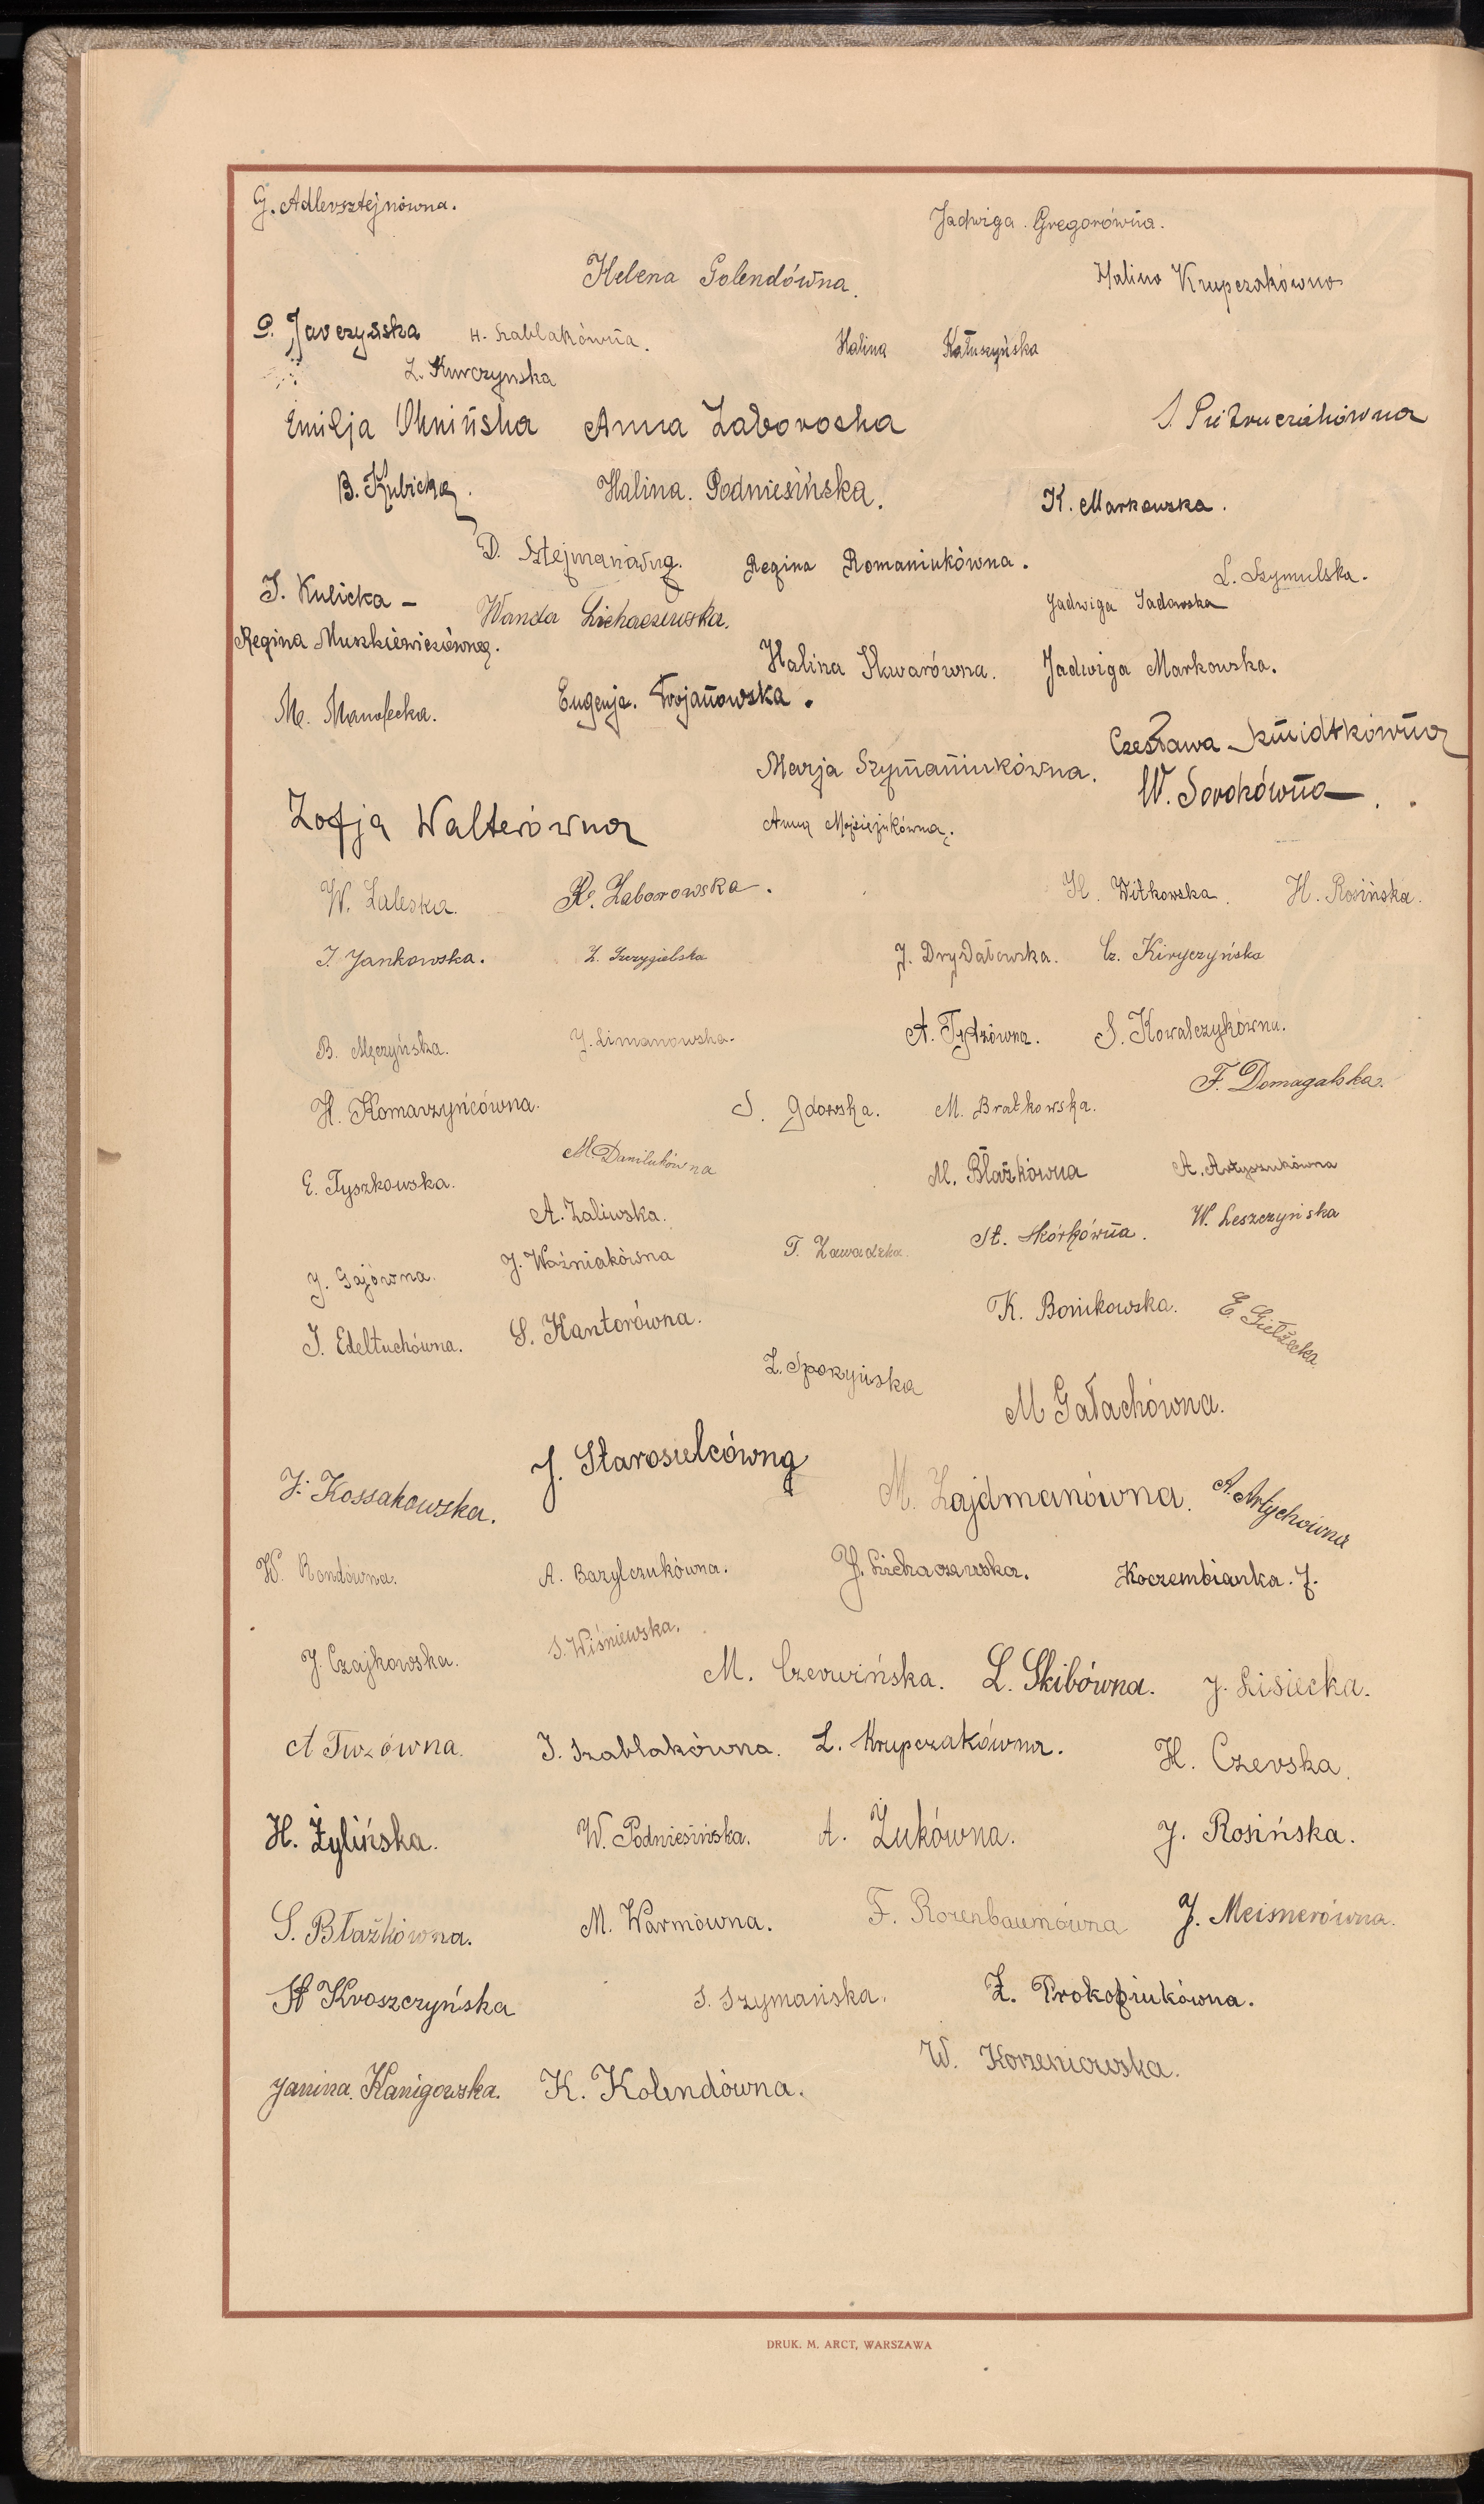 G. Adlersztejnówna.
Jadwiga Gregorówna.
Helena Golendówna.
Halina Krupczakówna
H. Szablakówna.
Halina Kałuszyńska
Z. Kurczynska
Emilja Oknińska Anna Zaboroska
S. Pietruczakówna
B. Kubicka.
Halina. Podniesińska.
K. Markowska.
D. Sztejmanówna.
Regina Romaniukówna.
L. Szymulska.
I. Kulicka –
Wanda Lichaczewska.
Jadwiga Sadowska
Regina Muszkiewiczówna.
Halina Skwarówna.
Jadwiga Markowska.
M. Manofecka.
Eugenja. Trojanowska.
Czesława Szmidtkówna
Marja Szymaniukówna.
W. Sorokówna.
Zofja Walterówna
Anna Mojsiejukówna.
W. Zaleska.
R. Zaborowska.
H. Witkowska.
H. Rosińska.
I. Jankowska.
Z. Szczygielska
J. Drydałowska.
Cz. Kiryczyńska
B. Męczyńska.
J. Limanowska.
A. Tydzówna.
S. Kowalczykówna.
F. Domagalska.
H. Komarzyńcówna.
S. Gdowska.
M. Bratkowska.
M. Danilukówna
M. Błażkówna
E. Tyszkowska.
A. Zaliwska.
W. Leszczyńska
T. Zawadzka.
St. Skórkówna.
J. Gajówna.
J. Woźniakówna
K. Bonikowska.
E. Giełżecka
I. Edeltuchówna.
S. Kantorówna.
Z. Spoczyńska
M Gałachówna.
J. Starosielcówna
J. Kossakowska.
M. Zajdmanówna.
A. Artychówna
W. Rondówna.
A. Bazylczukówna.
J. Lichaczewska.
Koczembianka. J.
J. Czajkowska.
S. Wiśniewska.
M. Czerwińska.
L. Skibówna.
J. Lisiecka.
A Twzówna.
I. Szablakówna.
L. Krupczakówna.
H. Czerska.
H. Żylińska.
W. Podniesińska.
A. Żukówna.
J. Rosińska.
S. Błażkówna.
M. Warmówna.
F. Rozenbaumówna
J. Meisnerówna.
St Kroszczyńska
S. Szymańska.
Z. Prokopiukówna.
W. Korzeniowska.
Janina. Kanigowska.
K. Kolendówna.
DRUK. M. ARCT, WARSZAWA